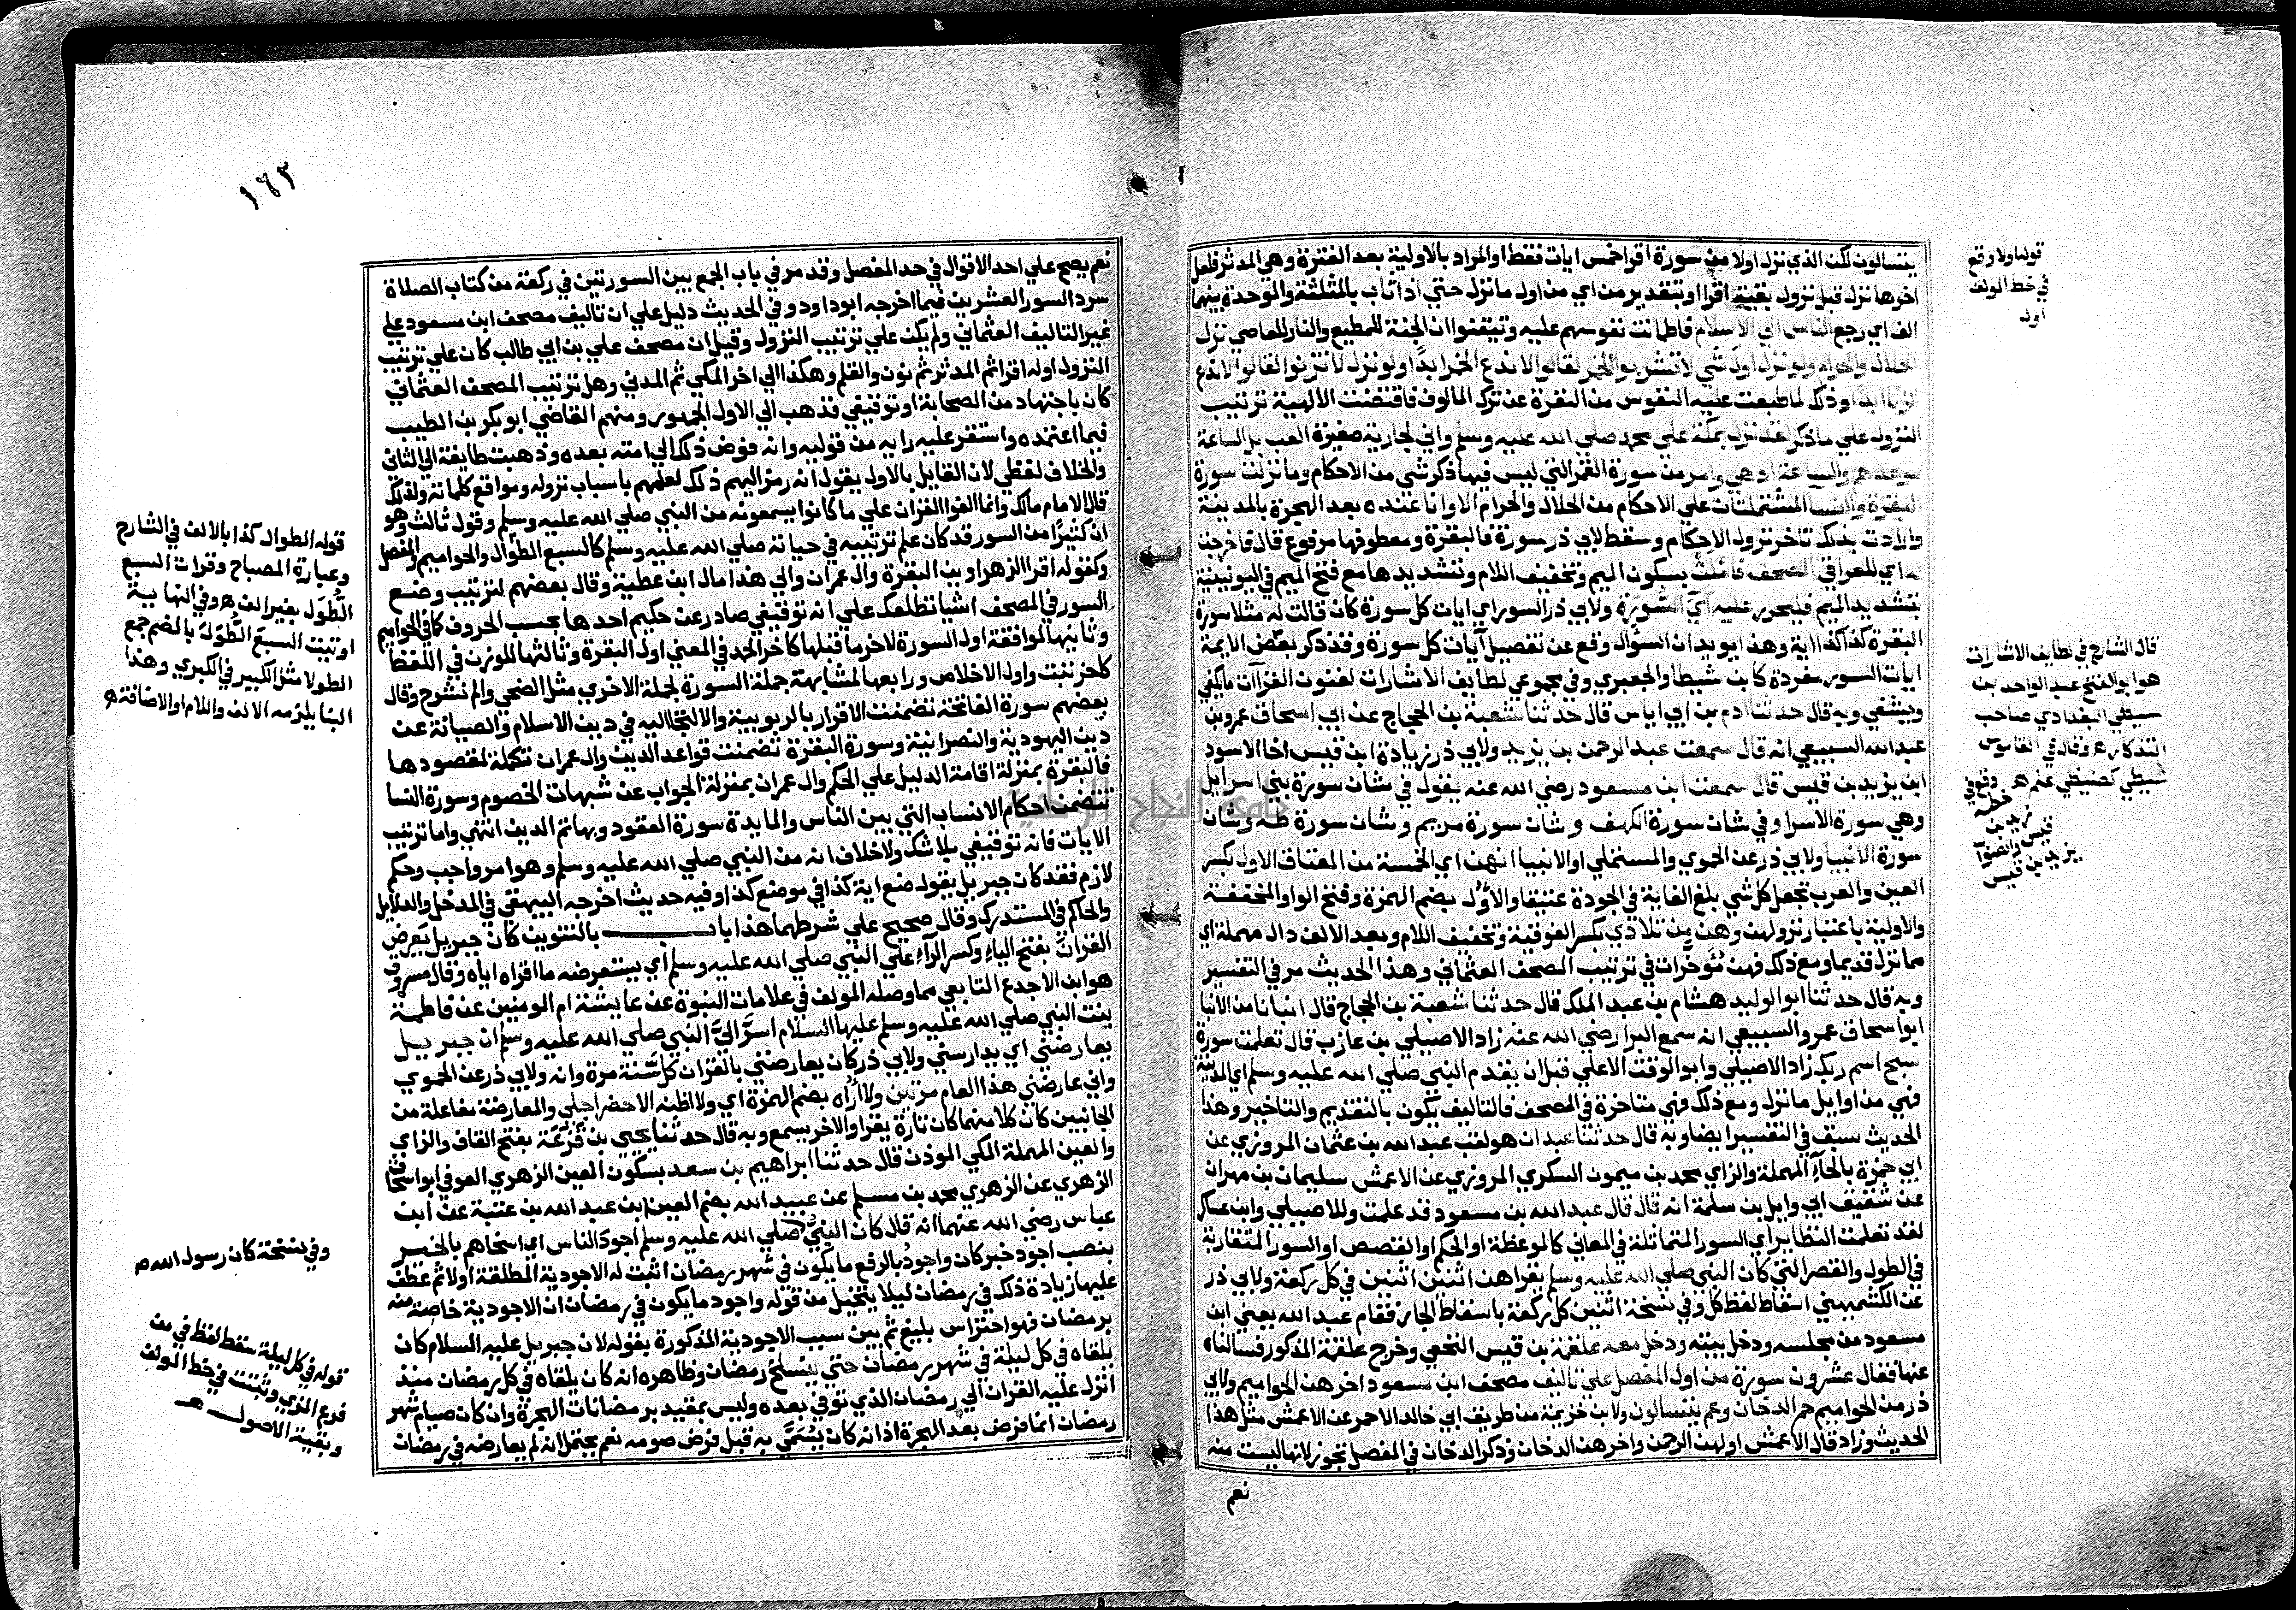 يتسالون لكن الذي نزل اولا من سورة اقرا خمس ايات فقط او المراد بالاولية بعد الفترة وهي المدثر فلعل
اخرها نزل قبل نزول بقية اقرا او بتقدير من اي من اول ما نزل حتي اذا ثاب بالمثلثة والوحدة بينهما
الف اي رجع الناس الي الاسلام فاطمانت نفوسهم عليه وتيقنوا ان الجنة للمطيع والنار للعاصي نزل
الحلال والحرام ولو نزل اول شي لا تشربوا الخمر لقالوا لا ندع الخمر ابدا ولو نزل لا تزنوا لقالوا لا ندع
الزنا ابدا وذلك لما طبعت عليه النفوس من النفرة عن ترك المالوف فاقتضت الالهية ترتيب
النزول علي ما ذكر لقد نزل بمكة علي محمد صلي الله عليه وسلم واني لجارية صغيرة العب بل الساعة
موعدهم والساعة ادهي وامر من سورة القمر التي ليس فيها ذكر شي من الاحكام وما نزلت سورة
البقرة والنسا المشتملتان علي الاحكام من الحلال والحرام الا وانا عنده بعد الهجرة بالمدينة
وارادت بذلك تاخر نزول الاحكام وسقط لابي ذر سورة فالبقرة ومعطوفها مرفوع قال فاخرجت
له اي للعراقي المصحف فاملت بسكون الميم وتخفيف اللام وتشديدها مع فتح الميم في اليونينية
بتشديد الميم فليحرر عليه اي السورة ولابي ذر السور اي ايات كل سورة كان قالت له مثلا سورة
البقرة كذا كذا اية وهذا يويد ان السؤال وقع عن تفصيل آيات كل سورة وقد ذكر بعض الايمة
ايات السور مفردة كابن شيطا والجعبري وفي مجموعي لطايف الاشارات لفنون القراآت ما يكفي
ويشفي وبه قال حدثنا آدم بن ابي اياس قال حدثنا شعبة بن الحجاج عن ابي اسحاق عمرو بن
عبد الله السبيعي انه قال سمعت عبد الرحمن بن يزيد ولابي ذر زيادة ابن قيس اخا الاسود
ابن يزيد بن قيس قال سمعت ابن مسعود رضي الله عنه يقول في شان سورة بني اسرايل
وهي سورة الاسرا وفي شان سورة الكهف وشان سورة مريم وشان سورة طه وشان
سورة الانبيا ولابي ذر عن الحموي والمستملي او الانبيا انهن اي الخمسة من العتاق الاول بكسر
العين والعرب تجعل كل شي بلغ الغاية في الجودة عتيقا والأول بضم الهمزة وفتح الواو المخففة
والاولية باعتبار نزولهن وهن من تلادي بكسر الفوقية وتخفيف اللام وبعد الالف دال مهملة اي
مما نزل قديما ومع ذلك فهن مؤخرات في ترتيب المصحف العثماني وهذا الحديث مر في التفسير
وبه قال حدثنا ابو الوليد هشام بن عبد الملك قال حدثنا شعبة بن الحجاج قال انبانا من الانبا
ابو اسحاق عمرو السبيعي انه سمع البرا رضي الله عنه زاد الاصيلي بن عازب قال تعلمت سورة
سبح اسم ربك زاد الاصيلي وابو الوقت الاعلي قبل ان يقدم النبي صلي الله عليه وسلم اي المدينة
فهي من اوايل ما نزل ومع ذلك فهي متاخرة في المصحف فالتاليف يكون بالتقديم والتاخير وهذا
الحديث سبق في التفسير ايضا وبه قال حدثنا عبدان هو لقب عبد الله بن عثمان المروزي عن
ابي حمزة بالحآء المهملة والزاي محمد بن ميمون السكري المروزي عن الاعمش سليمان بن مهران
عن شقيق ابي وايل بن سلمة انه قال قال عبد الله بن مسعود قد علمت وللاصيلي وابن عساكر
لقد تعلمت النظاير اي السور المتماثلة في المعاني كالموعظة او الحكم او القصص او السور المتقاربة
في الطول والقصر التي كان النبي صلي الله عليه وسلم يقراهن اثنين اثنين في كل ركعة ولابي ذر
عن الكشميهني اسقاط لفظ كل وفي نسخة اثنين كل ركعة باسقاط الجار فقام عبد الله يعني ابن
مسعود من مجلسه ودخل بيته ودخل معه علقمة بن قيس النخعي وخرج علقمة المذكور فسالناه
عنها فقال عشرون سورة من اول المفصل علي تاليف مصحف ابن مسعود اخرهن الحواميم ولابي
ذر من الحواميم حم الدخان وعم يتسالون ولابن خزيمة من طريق ابي خالد الاحمر عن الاعمش مثل هذا
الحديث وزاد قال الاعمش اولهن الرحمن واخرهن الدخان وذكر الدخان في المفصل تجوز لانها ليست منه
نعم
قوله اولا وقع
في خط المولف
اول
قال الشارح في لطايف الاشارات
هو ابو الفتح عبد الواحد بن
شيطي البغدادي صاحب
التذكار ه وقال في القاموس
شيطي كضيطي علم ه وقع في
خطه
يزيد بن
قيس والصواب
يزيد بن قيس
١٦٣
نعم يصح علي احد الاقوال في حد المفصل وقد مر في باب الجمع بين السورتين في ركعة من كتاب الصلاة
سرد السور العشرين فيما اخرجه ابو داود وفي الحديث دليل علي ان تاليف مصحف ابن مسعود علي
غير التاليف العثماني ولم يكن علي ترتيب النزول وقيل ان مصحف علي بن ابي طالب كان علي ترتيب
النزول اوله اقرا ثم المدثر ثم نون والقلم وهكذا الي اخر المكي ثم المدني وهل ترتيب المصحف العثماني
كان باجتهاد من الصحابة او توقيفي فذهب الي الاول الجمهور ومنهم القاضي ابو بكر بن الطيب
فيما اعتمده واستقر عليه رايه من قوليه وانه فوض ذلك الي امته بعده وذهبت طايفة الي الثاني
والخلاف لفظي لان القايل بالاول يقول انه رمز اليهم ذلك لعلمهم باسباب نزوله ومواقع كلماته ولذلك
قال الامام مالك وانما الفوا القران علي ما كانوا يسمعونه من النبي صلي الله عليه وسلم وقول ثالث وهو
ان كثيرا من السور قد كان علم ترتيبه في حياته صلي الله عليه وسلم كالسبع الطوال والحواميم والمفصل
وكقوله اقرا الزهراوين البقرة وال عمران والي هذا مال ابن عطية وقال بعضهم لترتيب وضع
السور في المصحف اشيا تطلعك علي انه توقيفي صادر عن حكيم احدها بحسب الحروف كما في الحواميم
وثانيها لموافقة اول السورة لاخر ما قبلها كاخر الحمد في المعني واول البقرة وثالثها للوزن في اللفظ
كاخر تبت واول الاخلاص ورابعها لمشابهة جملة السورة لجملة الاخري مثل الضحي والم نشرح وقال
بعضهم سورة الفاتحة تضمنت الاقرار بالربوبية والالتجا اليه في دين الاسلام والصيانة عن
دين اليهودية والنصرانية وسورة البقرة تضمنت قواعد الدين وال عمران تكملة لمقصودها
فالبقرة بمنزلة اقامة الدليل علي الحكم وال عمران بمنزلة الجواب عن شبهات الخصوم وسورة النسا
تتضمن احكام الانساب التي بين الناس والمايدة سورة العقود وبها تم الدين انتهي واما ترتيب
الايات فانه توقيفي بلا شك ولا خلاف انه من النبي صلي الله عليه وسلم وهو امر واجب وحكم
لازم فقد كان جبريل يقول ضع اية كذا في موضع كذا وفيه حديث اخرجه البيهقي في المدخل والدلايل
والحاكم في المستدرك وقال صحيح علي شرطهما هذا باب بالتنوين كان جبريل يعرض
القران بفتح الياء وكسر الرآء علي النبي صلي الله عليه وسلم اي يستعرضه ما اقراه اياه وقال مسروق
هو ابن الاجدع التابعي مما وصله المولف في علامات النبوة عن عايشة ام المومنين عن فاطمة
بنت النبي صلي الله عليه وسلم عليها السلام اسر الي النبي صلي الله عليه وسلم ان جبريل
يعارضني اي يدارسني ولابي ذر كان يعارضني بالقران كل سنة مرة وانه ولابي ذر عن الحموي
واني عارضني هذا العام مرتين ولا أراه بضم الهمزة اي ولا اظنه الا حضر اجلي والمعارضة مفاعلة من
الجانبين كان كلا منهما كان تارة يقرا والاخر يسمع وبه قال حدثنا يحيي بن قزعة بفتح القاف والزاي
والعين المهملة المكي الموذن قال حدثنا ابراهيم بن سعد بسكون العين الزهري العوفي ابو اسحاق
الزهري عن الزهري محمد بن مسلم عن عبيد الله بضم العين ابن عبد الله بن عتبة عن ابن
عباس رضي الله عنهما انه قال كان النبي صلي الله عليه وسلم اجود الناس اي اسخاهم بالخير
بنصب اجود خبر كان واجود بالرفع ما يكون في شهر رمضان اثبت له الاجودية المطلقة اولا ثم عطف
عليها زيادة ذلك في رمضان ليلا يتخيل من قوله واجود ما يكون في رمضان ان الاجودية خاصة منه
برمضان فهو احتراس بليغ ثم بين سبب الاجودية المذكورة بقوله لان جبريل عليه السلام كان
يلقاه في كل ليلة في شهر رمضان حتي ينسلخ رمضان وظاهره انه كان يلقاه في كل رمضان منذ
انزل عليه القران الي رمضان الذي توفي بعده وليس بمقيد برمضانات الهجرة وان كان صيام شهر
رمضان انما فرض بعد الهجرة اذ انه كان يسمي به قبل فرض صومه نعم يحتمل انه لم يعارضه في رمضان
قوله الطوال كذا بالالف في الشارح
وعبارة المصباح وقرات السبع
الطول بغير الف ه وفي النهاية
اوتيت السبع الطول بالضم جمع
الطولا مثل الكبير في الكبري وهذا
البنا يلزمه الالف واللام او الاضافة ه
وفي نسخة كان رسول الله م
قوله في كل ليلة سقط لفظ في من
فرع المزي وثبتت في خط المولف
وبقية الاصول ه
جامعة النجاح الوطنية